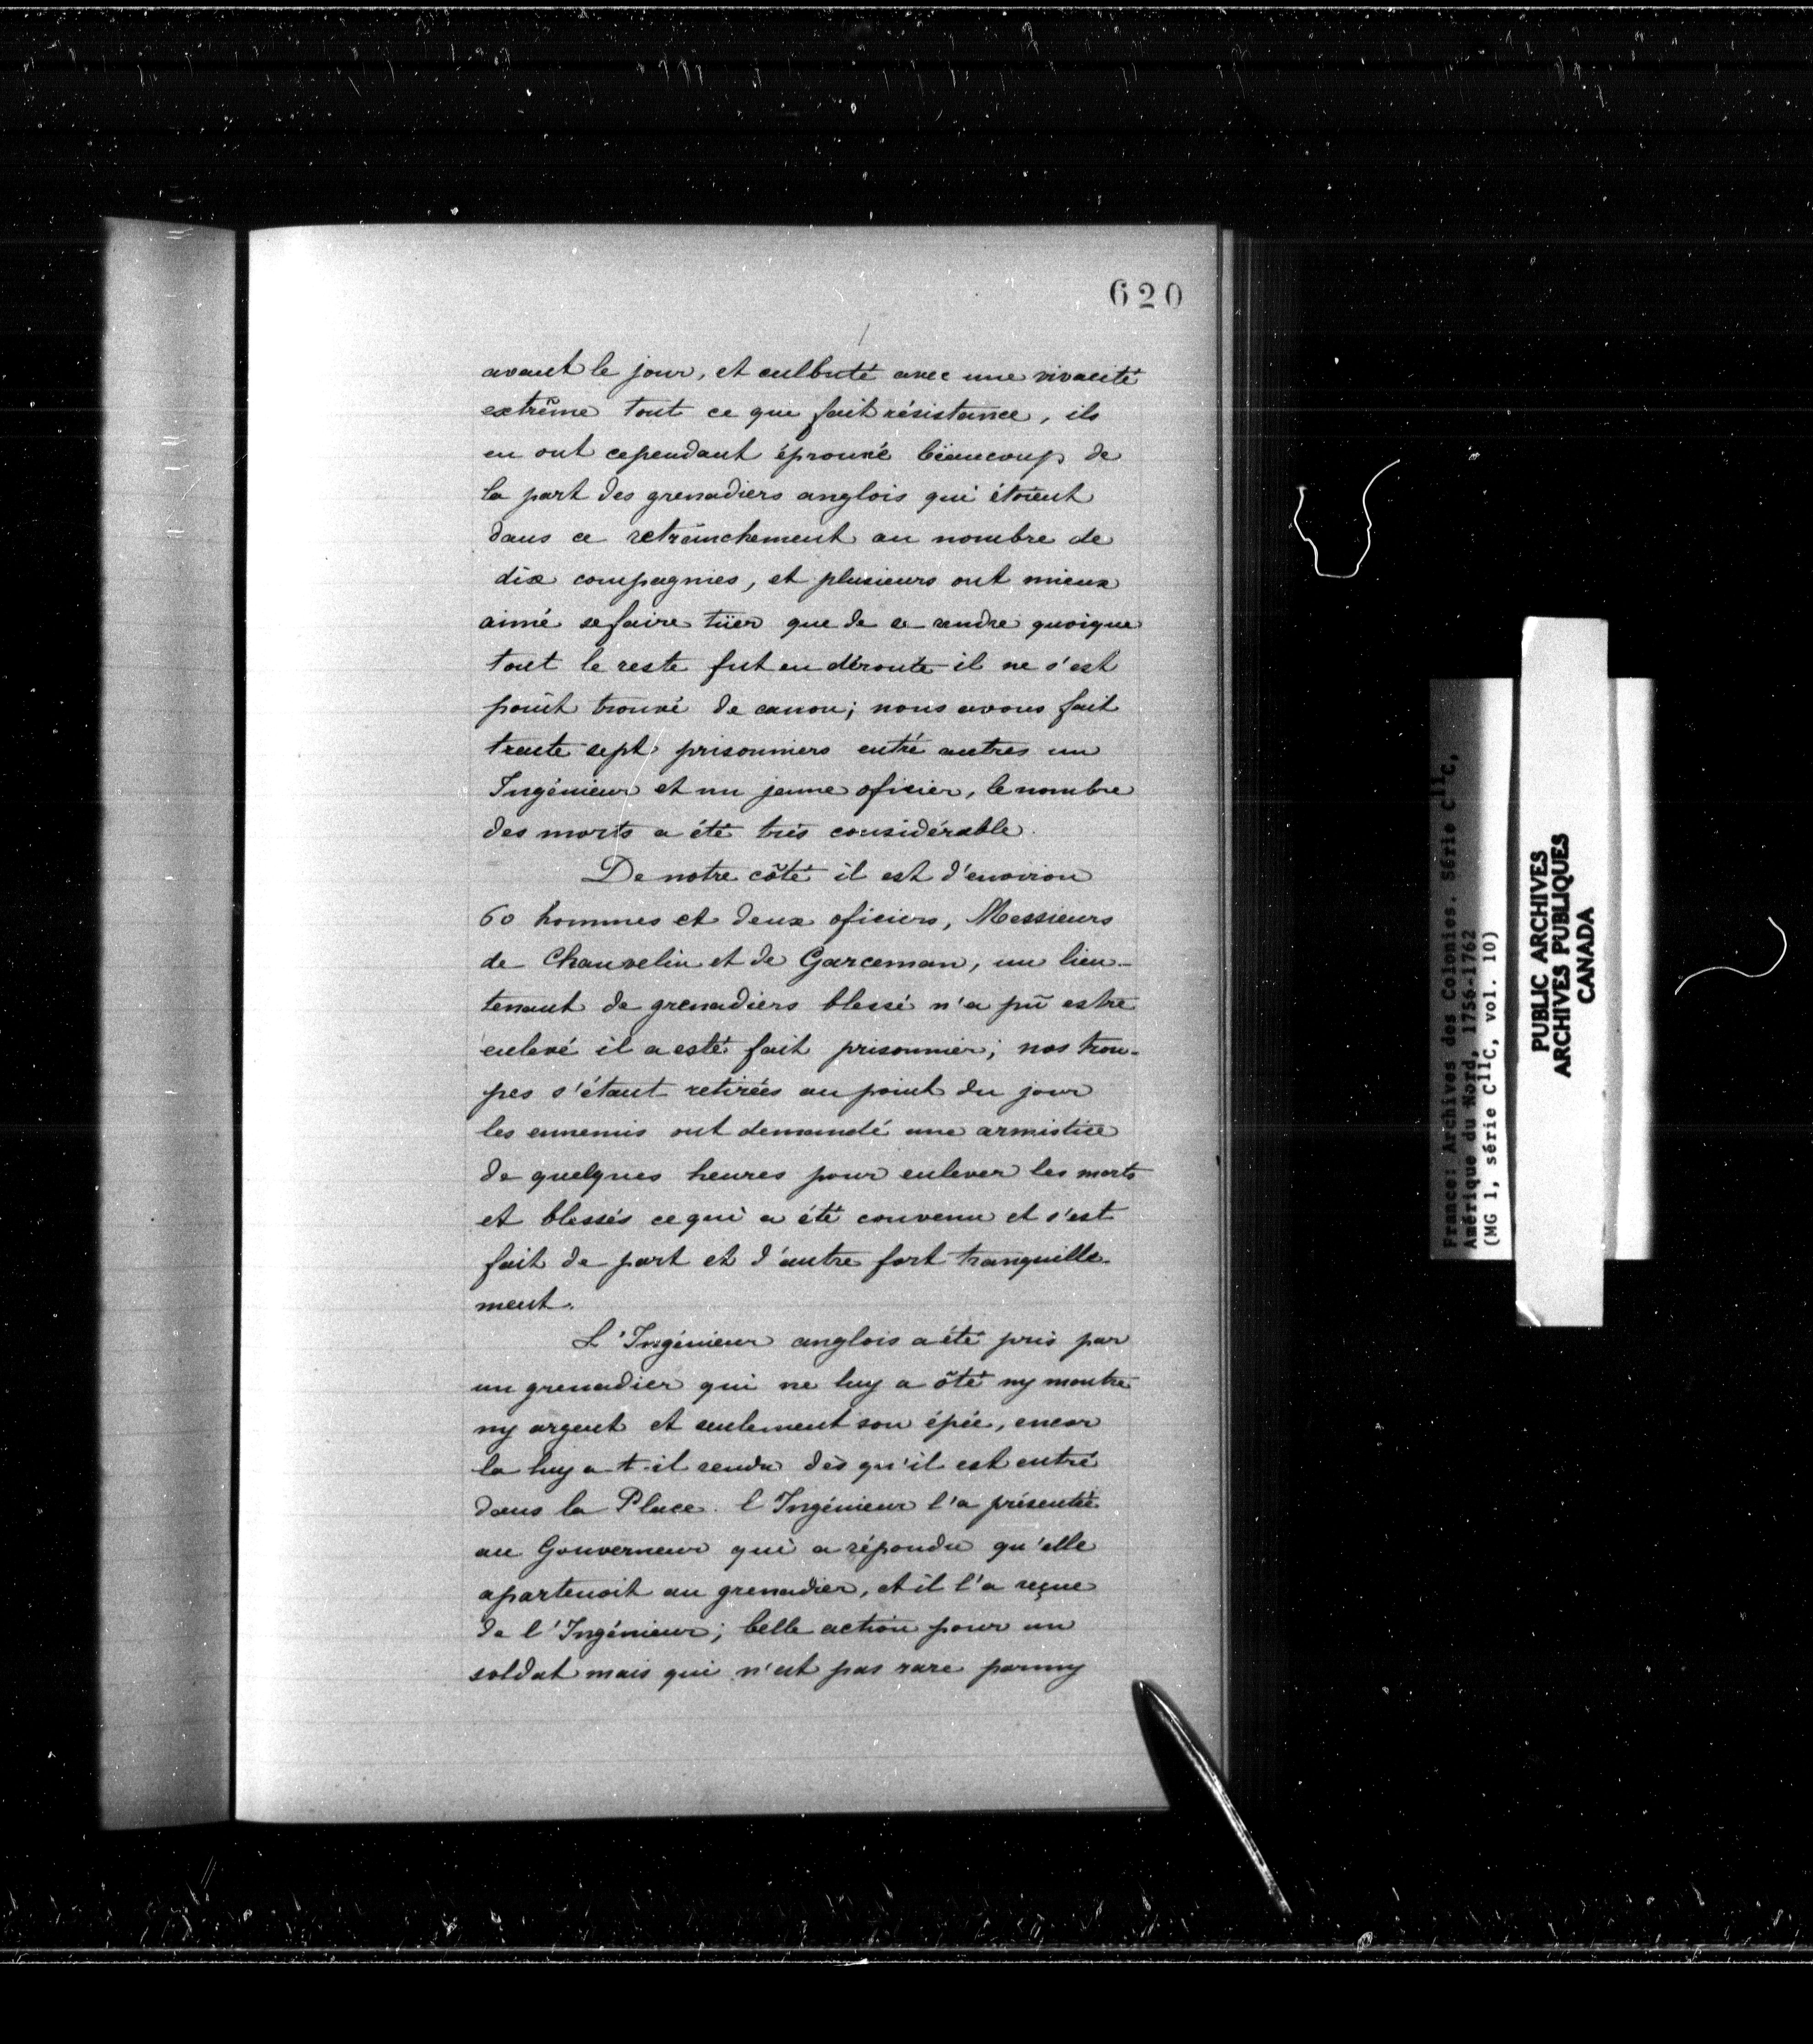 620
avant le jour, et culbuté avec une vivacité
extrême tout ce que fait résistance, ils
en ont cependant éprouvé beaucoup de
la part des grenadiers anglois qui étoient
dans ce retranchement au nombre de
dix compagnies, et plusieurs ont mieux
aimé se faire tüer que de se rendre quoique
tout le reste fut en déroute il ne s'est
point trouvé de canon; nous avons fait
trente sept prisonniers entre autres un
Ingénieur et un jeune oficier, le nombre
des morts a été très considérable.
De notre côté il est d'environ
60 hommes et deux oficiers, Messieurs
de Chauvelin et de Garceman, un lieu-
tenant de grenadiers blessé n'a pû estre
enlevé il a esté fait prisonnier; nos trou-
pes s'étant retirées au point du jour
les ennemis ont demandé une armistice
de quelques heures pour enlever les morts
et blessés ce qui a été convenu et s'est
fait de part et d'autre fort tranquille-
ment.
L'Ingénieur anglois a été pris par
un grenadier qui ne luy a ôté ny montre
ny argent et seulement son épée, encor
la luy a-t-il rendu dès qu'il est entré
dans la Place. l'Ingénieur l'a présentée
au Gouverneur qui a répondu qu'elle
apartenoit au grenadier, et il l'a reçue
de l'Ingénieur; belle action pour un
soldat mais qui n'est pas rare parmy
France: Archives des Colonies. Série C11C,
Amérique du Nord, 1756-1762
(MG 1, série C11C, vol. 10)
PUBLIC ARCHIVES
ARCHIVES PUBLIQUES
CANADA